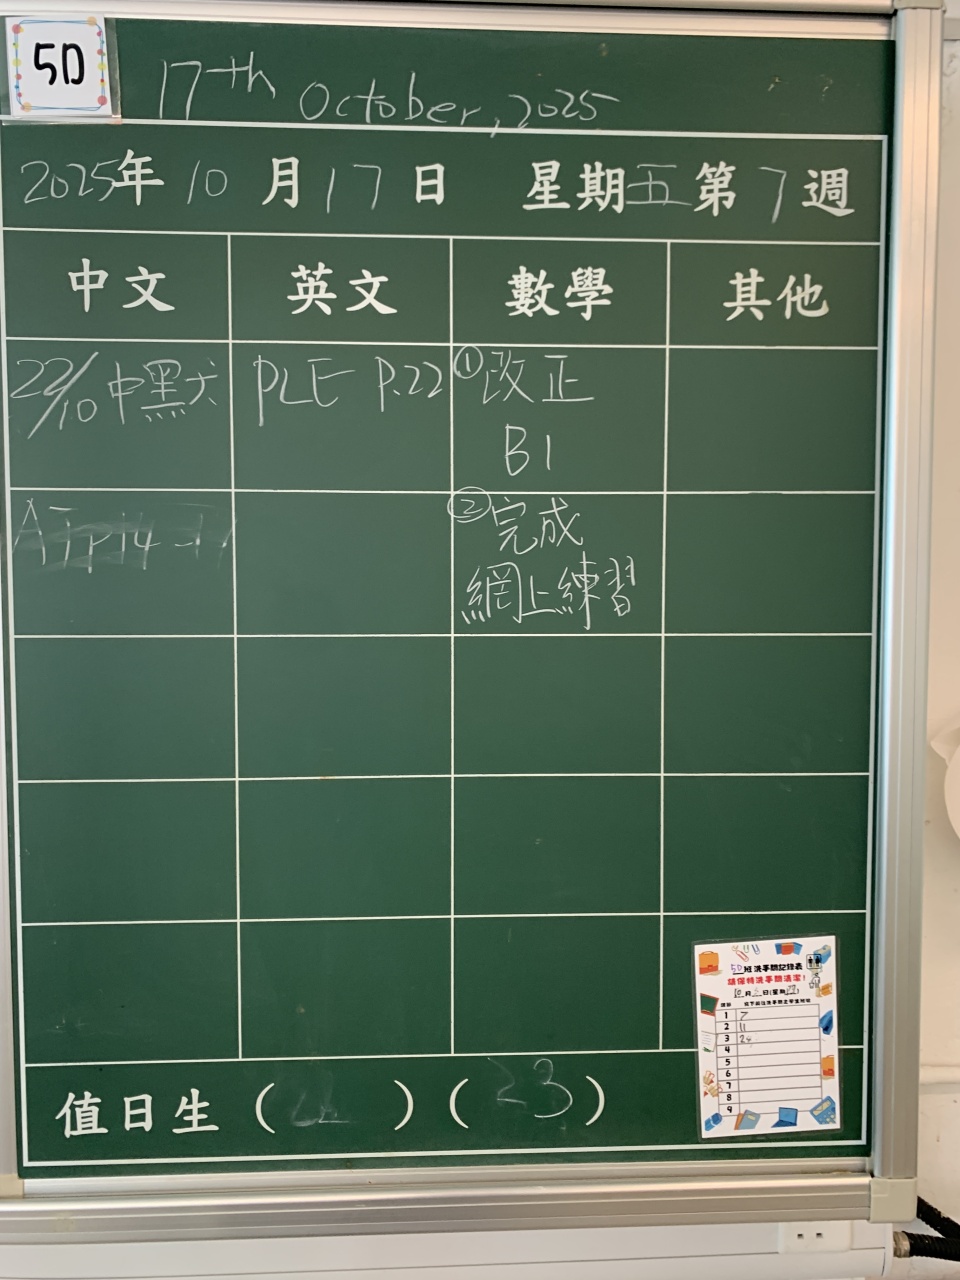 5D
17th October, 2025
2025年10月17日 星期五第7週
中文 英文 數學 其他
22/10 中黑犬 PLE P.22 ①改正
B1
②完成
網上練習
值日生( )(23)
5D班洗手間記錄表
請保持洗手間清潔!
1 7
2 11
3 24
4
5
6
7
8
9